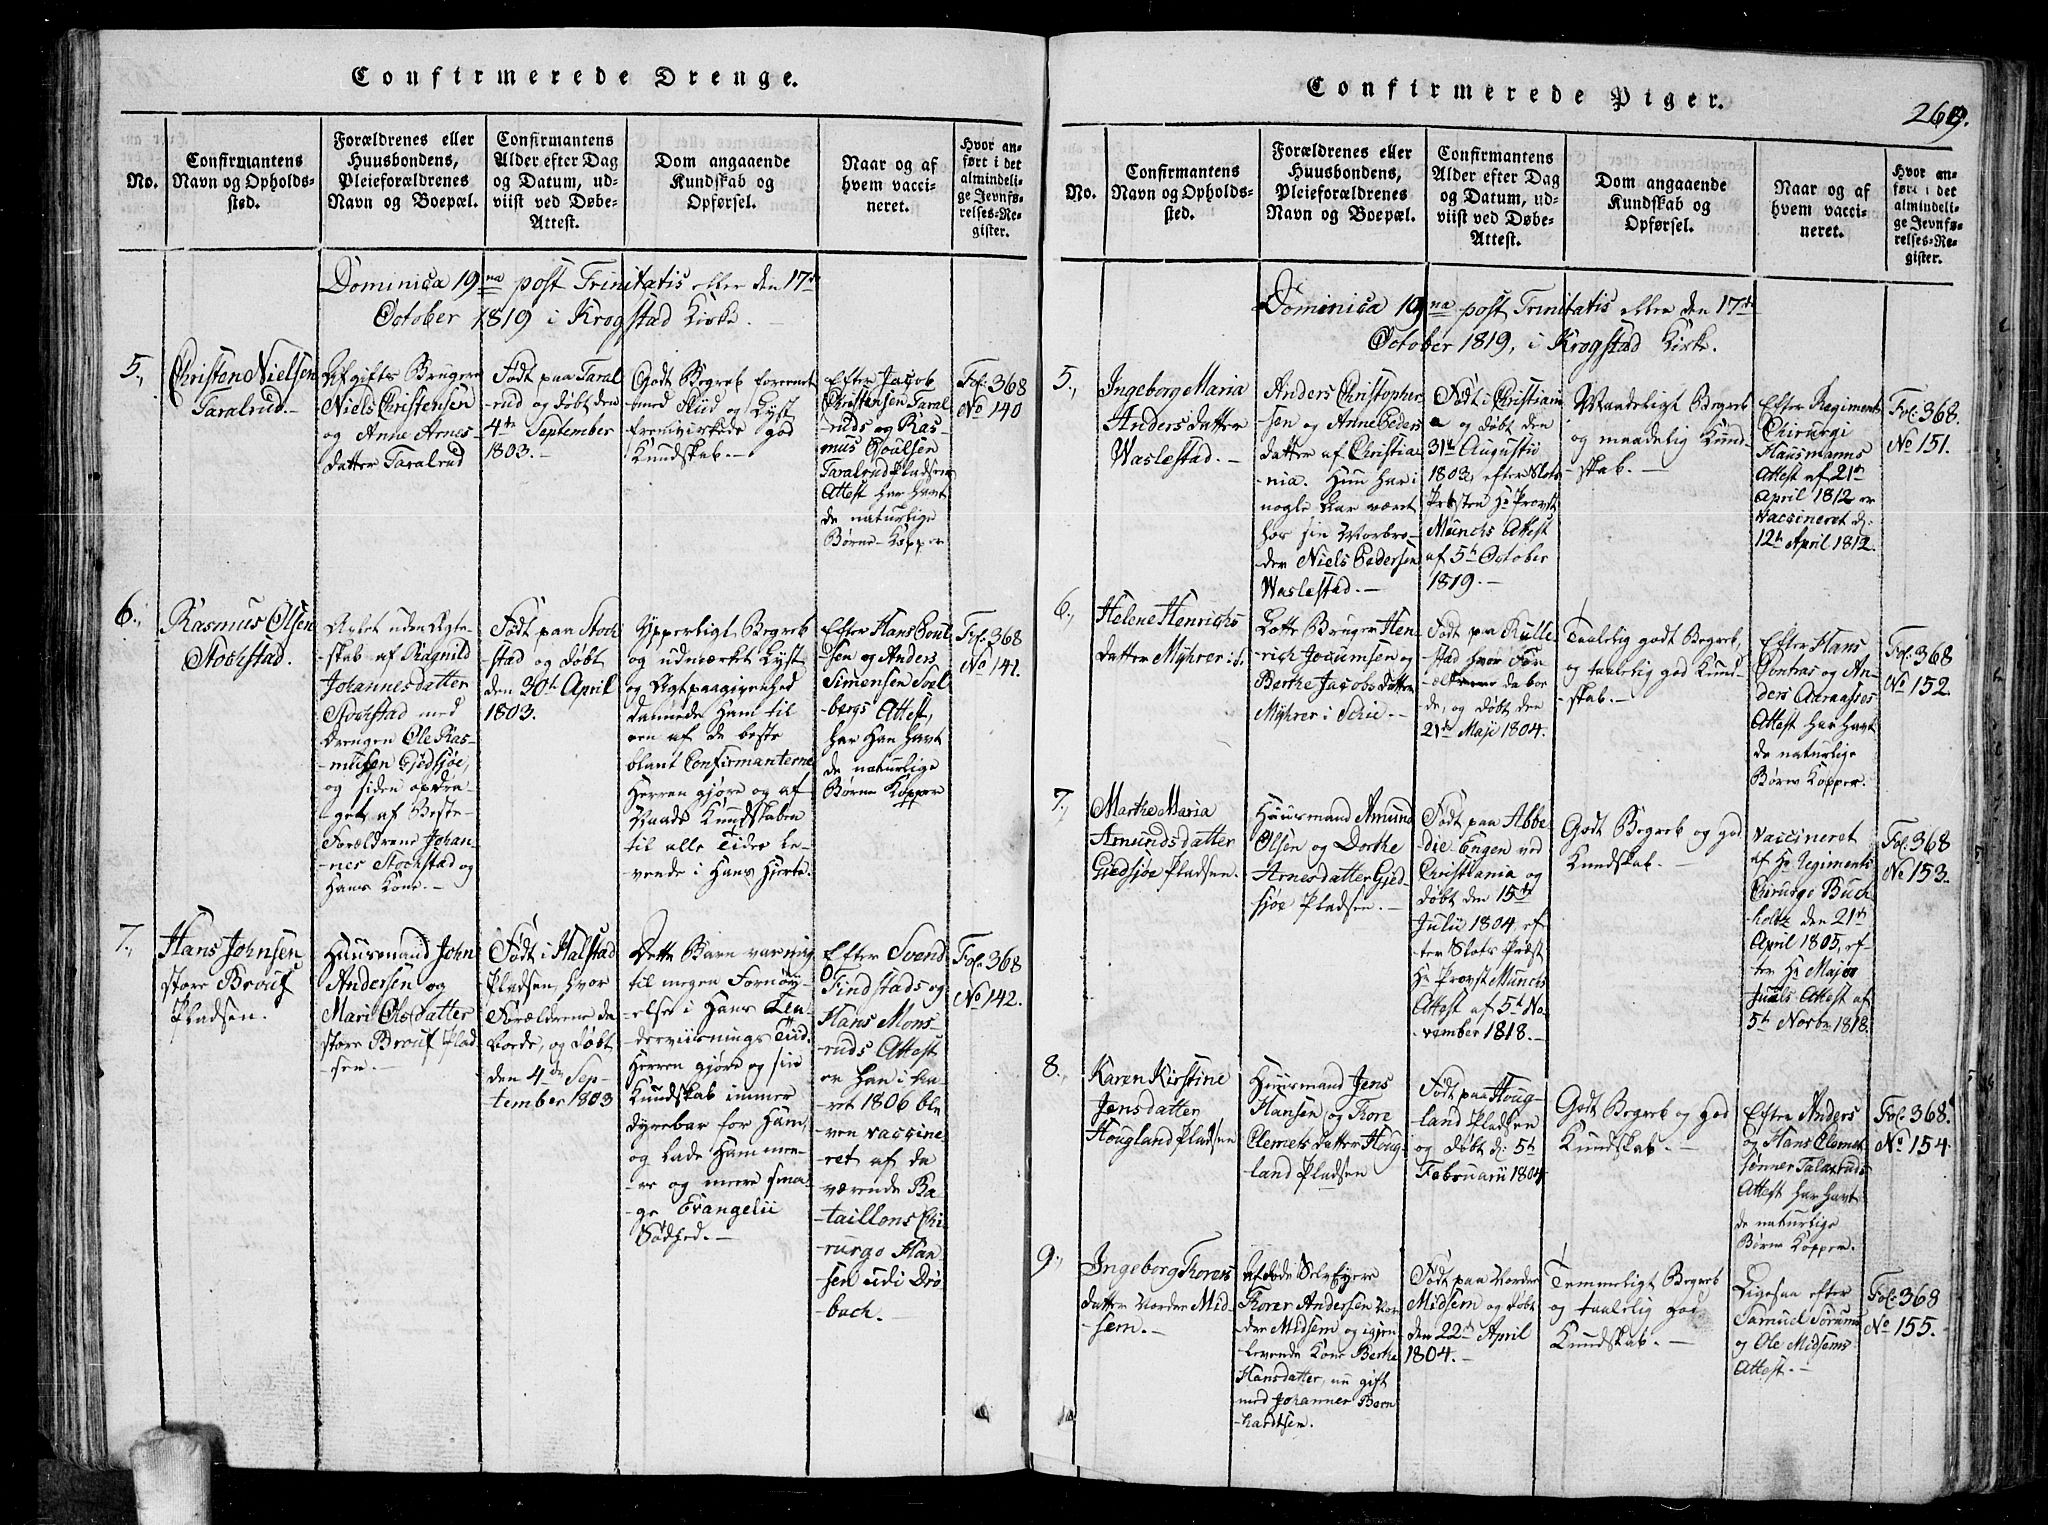 Confirmerede Drenge.
No.
Confirmantens
Navn og Opholds-
sted.
Forældrenes eller
Huusbondens,
Pleieforældrenes
Navn og Boepæl.
Confirmantens
Alder efter Dag
og Datum, ud-
viist ved Døbe-
Attest.
Dom angaaende
Kundskab og
Opførsel.
Naar og af
hvem vacci-
neret.
Hvor an-
ført i det
almindeli-
ge Jevnfø-
relses-Re-
gister.
Dominica 19na post Trinitatis eller den 17de
October 1819 i Krogstad Kirke.
5.,
Christen Nielsen
Taralrud.-
Afgifts Bruger
Niels Christensen
og Anne Arnes-
datter Taralrud
Født paa Taral
-rud og døbt den
4de September
1803.-
Godt Begreb forenet
med Fliid og Lyst
fremvirkede god
Kundskab.-
Efter Jacob
Christensen Taral
-ruds og Ras-
mus Poulsen
Taralrud Pladsens
Attest har havt
de naturlige
Børne-Kopper
Fol: 368
No 140
6.,
Rasmus Olsen
Stochstad.
Avlet uden Ægte-
-skab af Ragnild
Johannesdatter
Stochstad med
Drengen Ole Ras-
musen Gjedsjøe,
og siden opdra-
get af Beste-
Forældrene Johan-
nes Stochstad og
Hans Kone.-
Født paa Stoch
stad og døbt
den 30te April
1803.
Ypperligt Begreb
og udmærket Lyst
og Agtpaagivenhed
dannede Ham til
een af de beste
blant Confirmanterne
Herren gjøre og af
Naade Kundskaben
til alle Tider le-
-vende i Hans Hjerte.
Efter Hans Poul
sen og Anders
Simensen Soel
bergs Attest,
har Han havt
de naturlige
Børne Kopper
Fol: 368
No 141.
7.,
Hans Johnsen
store Brouf
Pladsen.
Huusmand John
Andersen og
Mari Olsdatter
store Brouf Plad
-sen.-
Født i Halstad
Pladsen, hvor
Forældrene da
boede, og døbt
den 4de Sep-
tember 1803
Dette Barn var mig
til megen Fornøy
-else i Hans Un-
derviisnings Tiid.
Herren gjøre og sin
Kundskab immer
dyrebar for Ham,
og lade Ham mee-
-re og meere sma-
ge Evangelii
Sødhed.-
Efter Svend
Findstads og
Hans Mons-
ruds Attest
er han i Aa-
ret 1806 ble
ven vaccine
ret af da
værende Ba-
-taillons Chi-
rurgo Han
sen udi Drø-
bach.-
Fol: 368
No 142.
Confirmerede Piger.
269.
No.
Confirmantens
Navn og Opholds-
sted.
Forældrenes eller
Huusbondens,
Pleieforældrenes
Navn og Boepæl.
Confirmantens
Alder efter Dag
og Datum, ud-
viist ved Døbe-
Attest.
Dom angaaende
Kundskab og
Opførsel.
Naar og af
hvem vacci-
neret.
Hvor an-
ført i det
almindeli-
ge Jevnfø-
relses-Re-
gister.
Dominica 19na post Trinitatis eller den 17de
October 1819, i Krogstad Kirke.
5.,
Ingeborg Maria
Andersdatter
Waslestad.-
Anders Christopher
sen og Anne Peders
datter af Christia
-nia. Hun har i
nogle Aar været
hos sin Morbro-
der Niels Pedersen
Waslestad.-
Født i Christiani
a og døbt den
31te Augusti
1803, efter Slots
Præsten Hr Provst
Munchs Attest
af 5te October
1819.-
Maadeligt Begreb
og maadelig Kund
-skab.-
Efter Regiments
Chirurgi
Hausmanns
Attest af 21de
April 1812 er
vaccineret d:
12te April 1812.
Fol: 368.
No 151.
6.,
Helene Henrichs
datter Myhrer i S.
Lotte Bruger Hen
rich Jocumsen og
Berthe Jacobsdatter
Myhrer i Schie.-
Født paa Kulle
stad hvor For-
ældrene da boe
de, og døbt den
21de Maji 1804.
Taalelig godt Begreb,
og taalelig god Kund
-skab.-
Efter Hans
Pontras og An-
ders Aaraasses
Attest har havt
de naturlige
Børne Kopper.
Fol: 368
No 152.
7.,
Marthe Maria
Amundsdatter
Giedsjøe Pladsen.
Huusmand Amund
Olsen og Dorthe
Arnesdatter Gied-
sjøe Pladsen.-
Født paa Abbe
die Engen ved
Christiania og
døbt den 15de
Julii 1804, ef-
ter Slots Præst
Hr Provst Munchs
Attest af 5te No
-vember 1818.-
Godt Begreb og god
Kundskab.-
Vaccineret
af Hr Regiments
Chirurgo Buch
holtz den 21de
April 1805, ef-
ter Hr Major
Juuls Attest af
5te Novbr 1818.
Fol: 368
No 153.
8.,
Karen Kirstine
Jensdatter
Hougland Pladsen
Huusmand Jens
Hansen og Thore
Clemetsdatter Houg-
land Pladsen
Født paa Houg-
land Pladsen
og døbt d: 5te
Februarii 1804
Godt Begreb og god
Kundskab.-
Efter Anders
og Hans Clemet
sønner Talaxruds
Attest har havt
de naturlige
Børne Kopper.
Fol: 368.
No 154.
9.,
Ingeborg Thores
datter Nordre Mid-
sem.-
Afdøde Selv Eyere
Thorer Andersen Nor
dre Midsem og igjen
levende Kone Berthe
Hansdatter, nu gift
med Johannes Bern
-hardtsen.
Født paa Nordre
Midsem og døbt
den 22de April
1804.-
Temmeligt Begreb
og taalelig god
Kundskab.-
Ligesaa efter
Samuel Sørums
og Ole Midsems
Attest.-
Fol: 368
No 155.-